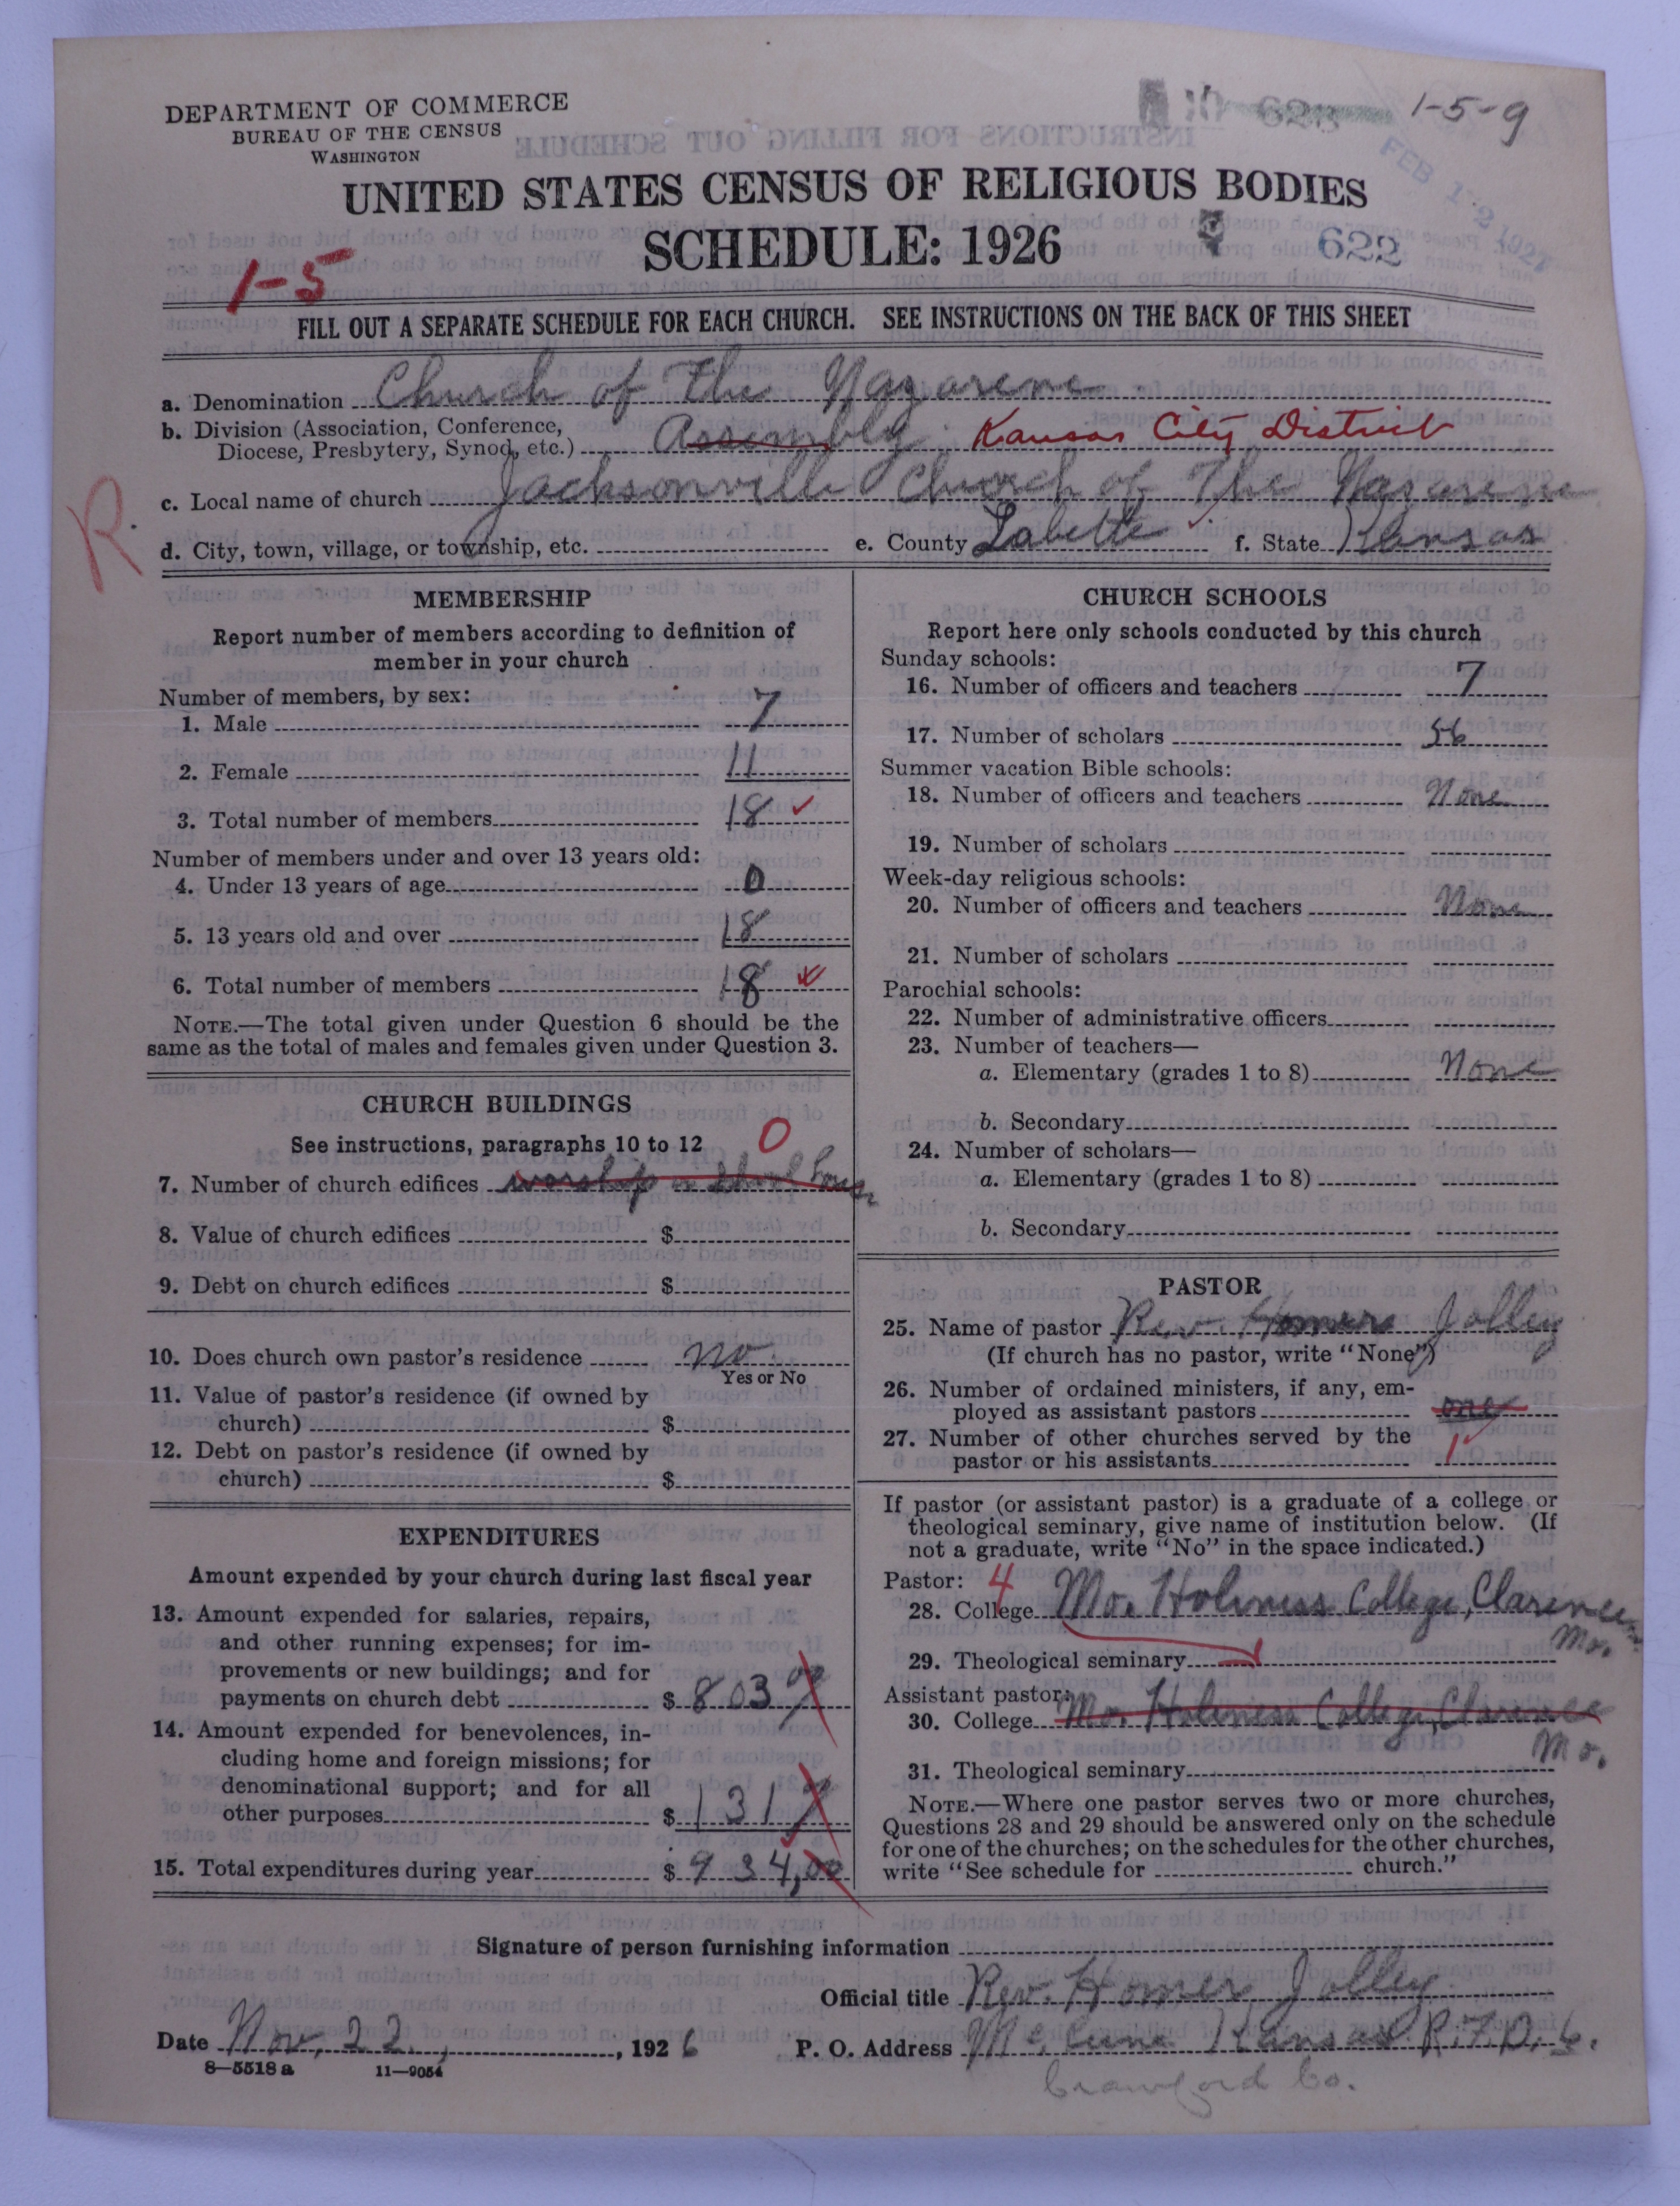 DEPARTMENT OF COMMERCE
BUREAU OF THE CENSUS
WASHINGTON
1-5-9
FEB 12 1927
UNITED STATES CENSUS OF RELIGIOUS BODIES
SCHEDULE: 1926
622
1-5
FILL OUT A SEPARATE SCHEDULE FOR EACH CHURCH. SEE INSTRUCTIONS ON THE BACK OF THIS SHEET
a. Denomination Church of the Nazarene
b. Division (Association, Conference, Diocese, Presbytery, Synod, etc.) Assembly Kansas City District
c. Local name of church Jacksonville Church of The Nazarene
R.
d. City, town, village, or township, etc. e. County Labette f. State Kansas
MEMBERSHIP
Report number of members according to definition of
member in your church
Number of members, by sex:
1. Male 7
2. Female 11
3. Total number of members 18
Number of members under and over 13 years old:
4. Under 13 years of age 0
5. 13 years old and over 18
6. Total number of members 18
NOTE.—The total given under Question 6 should be the
same as the total of males and females given under Question 3.
CHURCH BUILDINGS
See instructions, paragraphs 10 to 12 0
7. Number of church edifices worship in school house
8. Value of church edifices $
9. Debt on church edifices $
10. Does church own pastor's residence no
Yes or No
11. Value of pastor's residence (if owned by
church) $
12. Debt on pastor's residence (if owned by
church) $
EXPENDITURES
Amount expended by your church during last fiscal year
13. Amount expended for salaries, repairs,
and other running expenses; for im-
provements or new buildings; and for
payments on church debt $ 803
14. Amount expended for benevolences, in-
cluding home and foreign missions; for
denominational support; and for all
other purposes $ 131
15. Total expenditures during year $ 934,00
CHURCH SCHOOLS
Report here only schools conducted by this church
Sunday schools:
16. Number of officers and teachers 7
17. Number of scholars 56
Summer vacation Bible schools:
18. Number of officers and teachers None
19. Number of scholars
Week-day religious schools:
20. Number of officers and teachers None
21. Number of scholars
Parochial schools:
22. Number of administrative officers
23. Number of teachers—
a. Elementary (grades 1 to 8) None
b. Secondary
24. Number of scholars—
a. Elementary (grades 1 to 8)
b. Secondary
PASTOR
25. Name of pastor Rev. Homer Jolley
(If church has no pastor, write "None")
26. Number of ordained ministers, if any, em-
ployed as assistant pastors one
27. Number of other churches served by the
pastor or his assistants 1
If pastor (or assistant pastor) is a graduate of a college or
theological seminary, give name of institution below. (If
not a graduate, write "No" in the space indicated.)
Pastor: 4
28. College Mo. Holiness College, Clarence
Mo.
29. Theological seminary
Assistant pastor:
30. College Mo. Holiness College, Clarence
Mo.
31. Theological seminary
NOTE.—Where one pastor serves two or more churches,
Questions 28 and 29 should be answered only on the schedule
for one of the churches; on the schedules for the other churches,
write "See schedule for church."
Signature of person furnishing information
Official title Rev. Homer Jolley
Date Nov, 22, 1926 P. O. Address McCune Kansas R.F.D. 6.
8—5518 a 11—9054
Crawford Co.